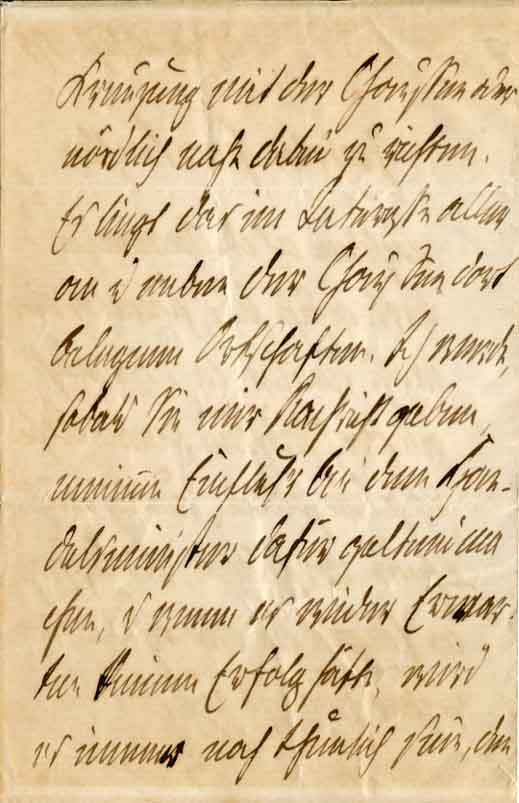 Kreuzung mit der Chaussee oder
nördlich nahe dabei zu richten.
Es liegt das im Interesse aller
an u neben der Chaussee dort
belegenen Ortschaften. Ich werde,
sobald Sie mir Nachricht geben,
meinen Einfluß bei dem Han-
delsminister dafür geltend ma
chen, u wenn es wieder Erwar-
ten keinen Erfolg hätte, wird
es immer noch thunlich sein, den